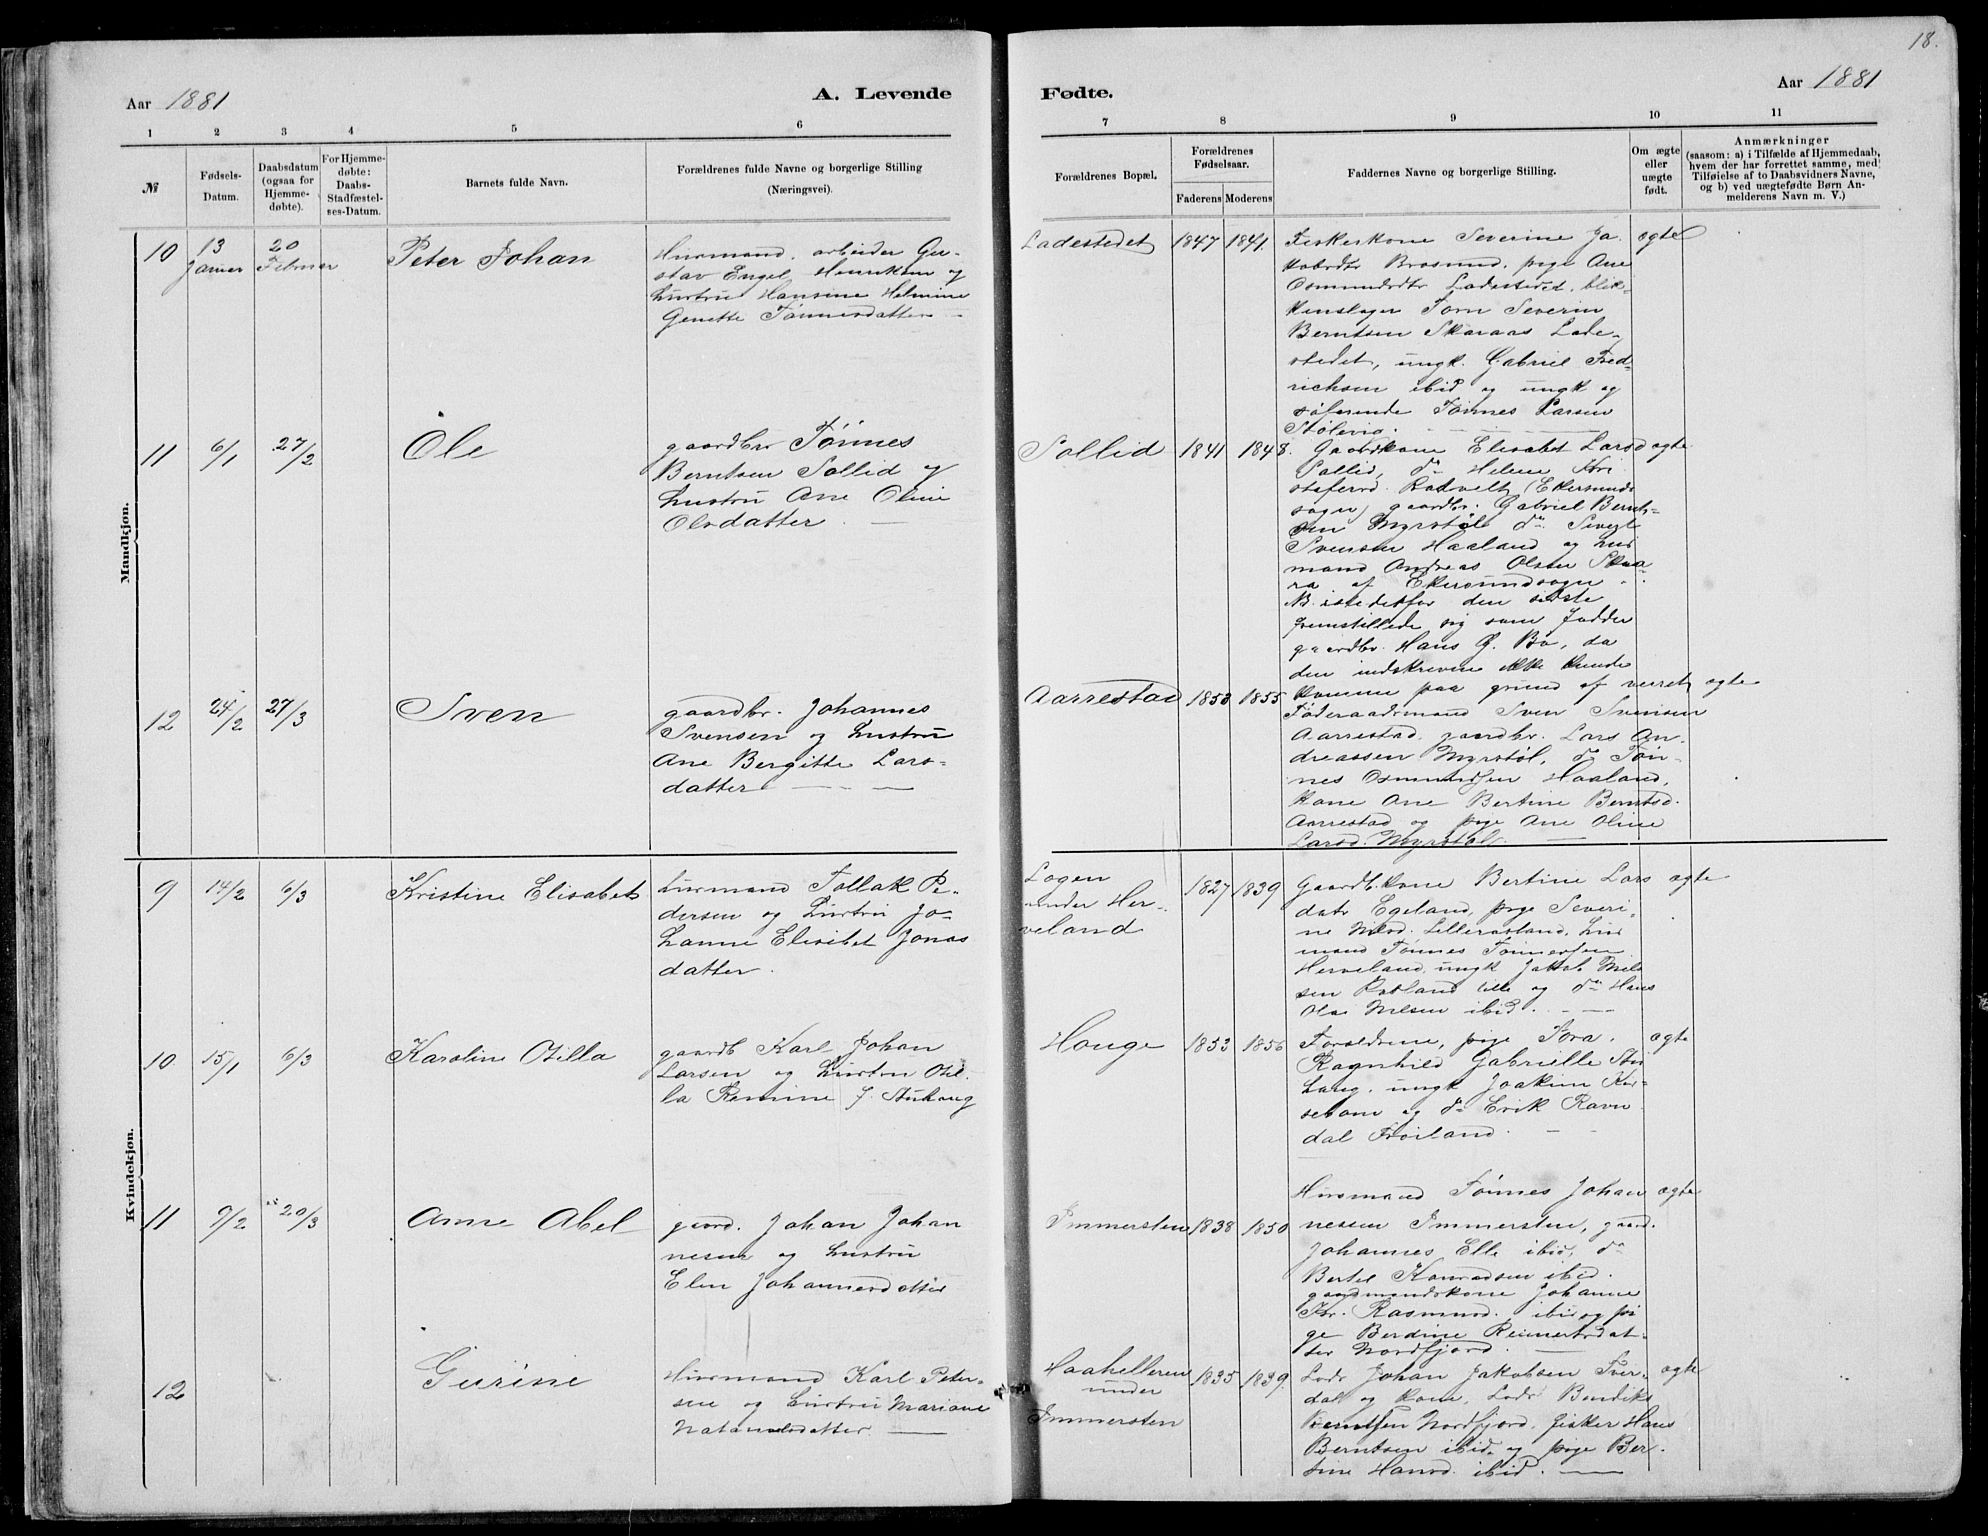 18.
Aar 1881
A. Levende
Fødte.
Aar 1881
1 2 3 4 5 6
7 8 9 10 11
№
Fødsels-
Datum.
Daabsdatum
(ogsaa for
Hjemme-
døbte).
For Hjemme-
døbte:
Daabs-
Stadfæstel-
ses-Datum.
Barnets fulde Navn.
Forældrenes fulde Navne og borgerlige Stilling
(Næringsvei).
Forældrenes Bopæl.
Forældrenes
Fødselsaar.
Faderens Moderens
Faddernes Navne og borgerlige Stilling.
Om ægte
eller
uægte
født.
Anmærkninger
(saasom: a) i Tilfælde af Hjemmedaab,
hvem der har forrettet samme, med
Tilføielse af to Daabsvidners Navne,
og b) ved uægtefødte Børn An-
melderens Navn m. V.)
Mandkjøn.
10
13
Januar
20
Februar
Peter Johan
Husmand. arbeider Gu-
stav Engel Henriksen og
hustru Hansine Helmine
Genette Tønnesdatter
Ladestedet
1847 1841.
Fiskerkone Severine Ja-
kobsdtr Brosund, pige Ane
Osmundsdtr Ladestedet, blik-
kenslager Torn Severin
Berntsen Skaraas Lade-
stedet, ungk. Gabriel Fred-
richsen ibid og ungk og
søfarende Tønnes Larsen
Stølevig.
ægte
11
6/1
27/2
Ole
gaardbr Tønnes
Berntsen Sollid og
hustru Ane Oline
Olsdatter
Sollid
1841 1848.
Gaardkone Elisabet Larsd
Sollid, do Helene Kri
stofersd. Rodvelt (Ekersunds
sogn) gaardbr. Gabriel Bernt-
sen Myrstøl do Sivert
Svensen Haaland og hus
mand Andreas Olsen Skaa-
ra af Ekersundsogn.
NB istedetfor den sidste
fremstillede sig som Fadder
gaardbr. Hans G. Bø, da
den indskrevne ikke kunde
komme paa grund af veiret
ægte
12
24/2
27/3
Sven
gaardbr. Johannes
Svensen og hustru
Ane Bergitte Lars-
datter
Aarrestad
1853 1855
Føderaadsmand Sven Svensen
Aarrestad gaardbr. Lars An-
dreassen Myrstøl, do Tøn-
nes Osmundsen Haaland,
kone Ane Bertine Berntsd.
Aarrestad og pige Ane Oline
Larsd. Myrstøl
ægte
Kvindekjøn.
9
14/2
6/3
Kristine Elisabet
husmand Tollak Pe-
dersen og hustru Jo-
hanne Elisabet Jonas
datter.
Logen
under Her-
veland
1827 1839
Gaardb. kone Bertine Lars
datr Egeland, pige Severi-
ne Nilsd. Lillerasland, hus
mand Tønnes Tønnessen
Herveland, ungk Jakob Nils
sen Rotland lille og do Hans
Olai Nilsen ibid.
ægte
10
15/1
6/3
Karoline Otilla
gaardb Karl Johan
Larsen og hustru Otil-
la Remine f. Stuhaug
Houge
1853 1856
Forældrene, pige Tora
Ragnhild Gabrielle Stu
haug, ungk Joakim Kir-
sebom og do Erik Ravn
dal Frøiland.
ægte
11
9/2
20/3
Anne Abel
gaard. Johan Johan
nesen og hustru
Elen Johannesdatter
Immersten
1838 1850
Husmand Tønnes Johan
nessen Immersten, gaard.
Johannes Elle ibid, do
Bertel Konradsen ibid.
gaardmandskone Johanne
Kr. Rasmusd. ibid og pi
ge Berdine Reinertsdat-
ter Nordfjord.
ægte
12
Gurine
Husmand Karl Peter-
sen og hustru Mariane
Natanielsdatter.
Haahelleren
under
Immersten
1835 1839.
Lods Johan Jakobsen Sver-
dal og kone, Lods Bendiks
Berntsen Nordfjord, fisker Hans
Berntsen ibid. og pige Ber-
tine Hansd. ibid.
ægte